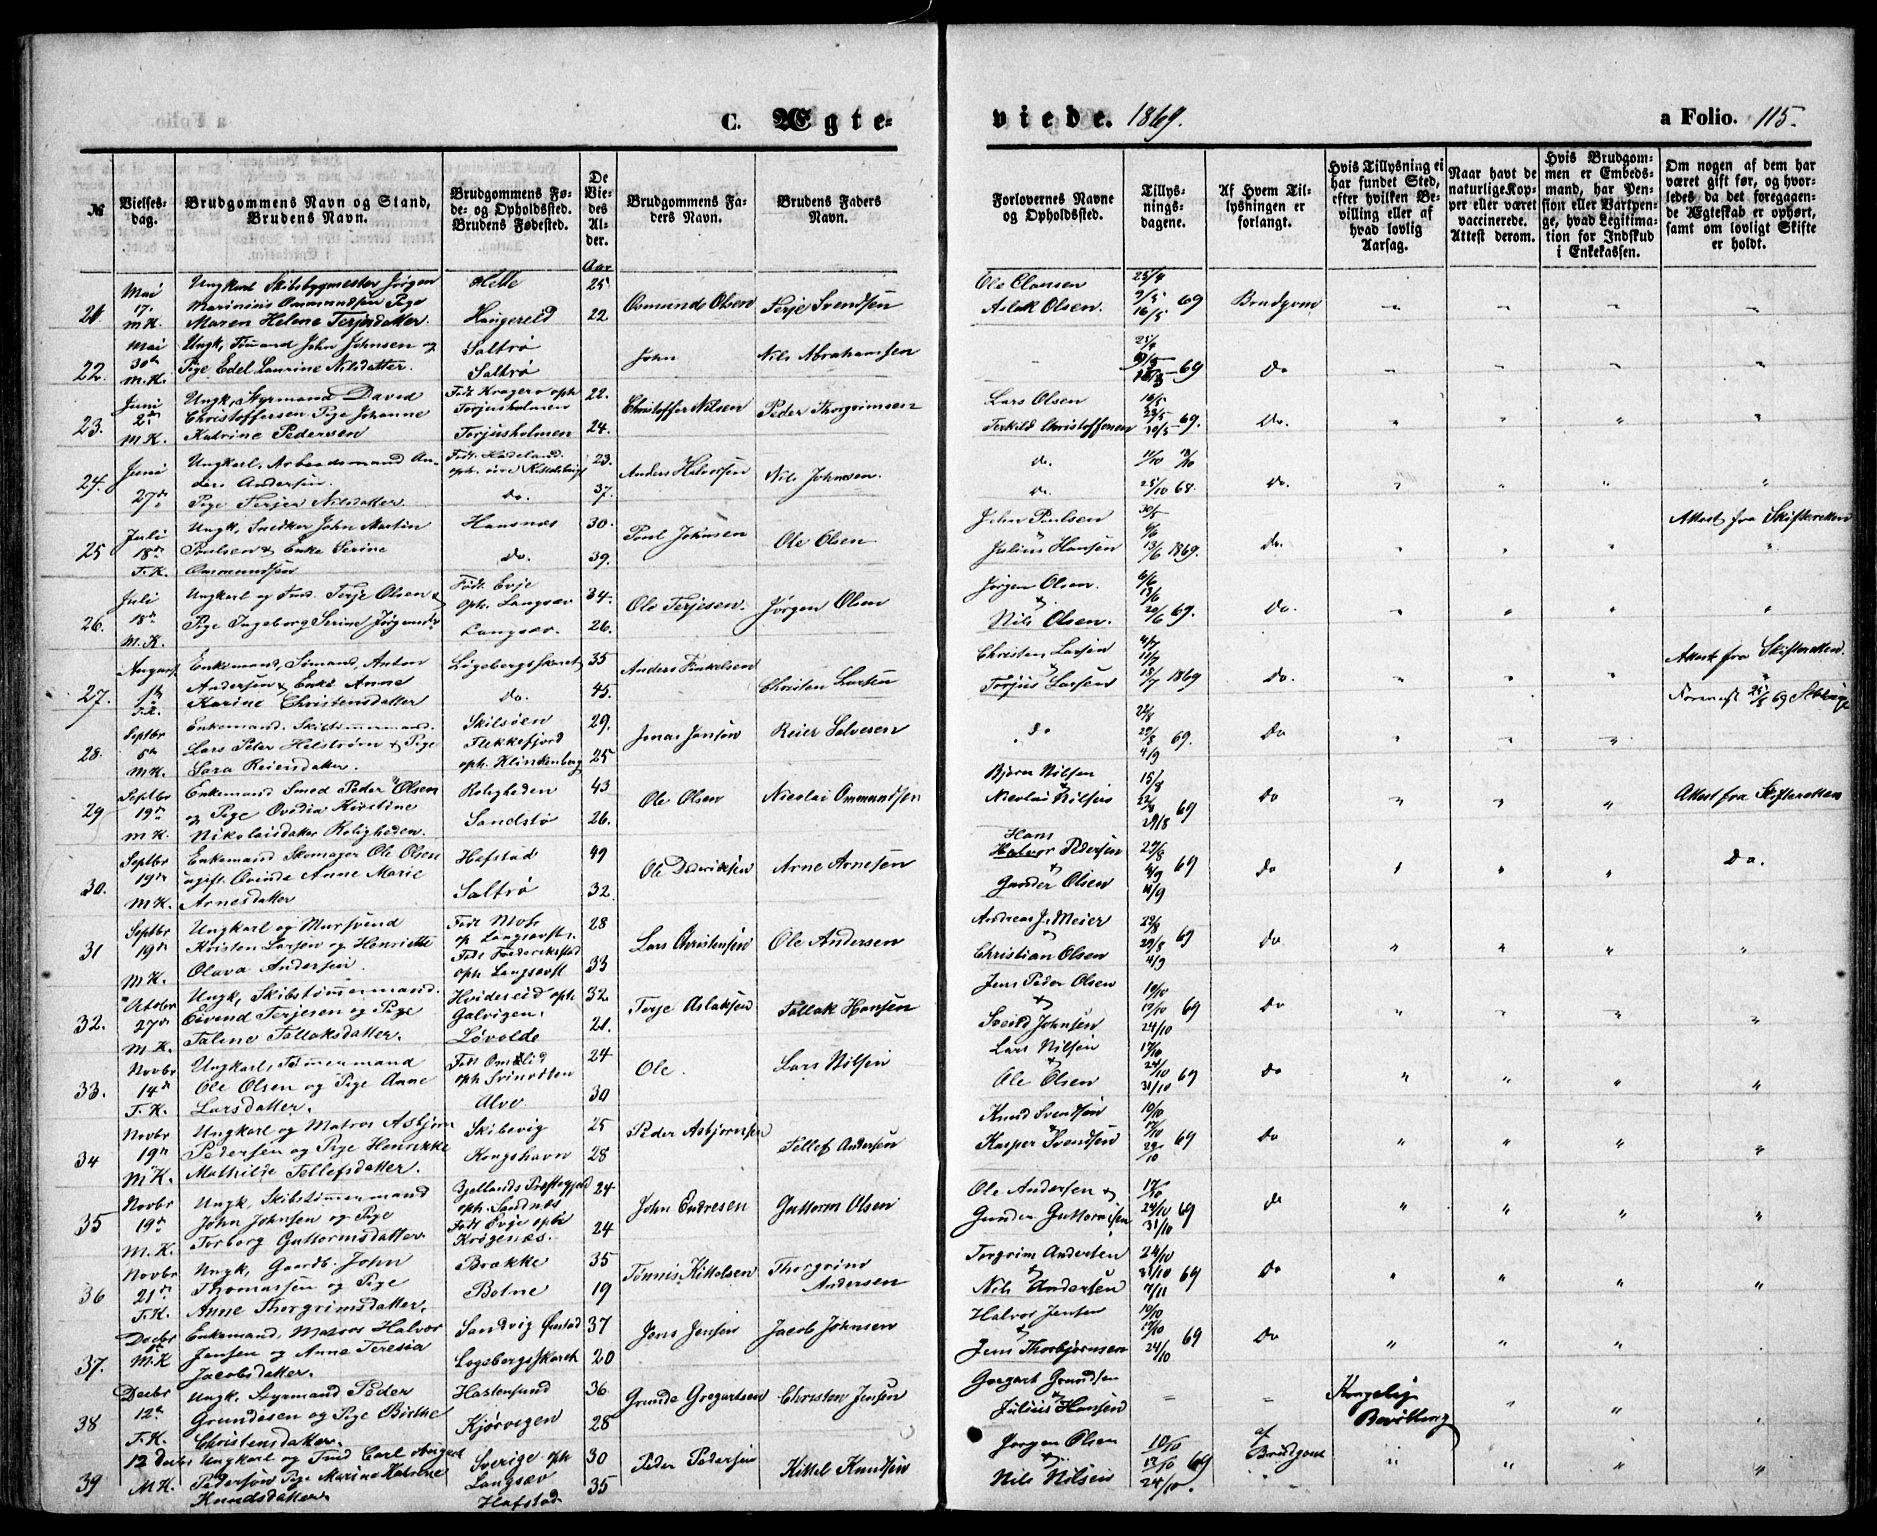 C. Ægte-
viede. 1869.
a Folio. 115.
№
Vielses-
dag.
Brudgommens Navn og Stand,
Brudens Navn.
Brudgommens Fø-
de- og Opholdssted.
Brudens Fødested.
De
Vie-
des
Al-
der.
Aar
Brudgommens Fa-
ders Navn.
Brudens Faders
Navn.
Forlovernes Navne
og Opholdssted.
Tillys-
nings-
dagene.
Af Hvem Til-
lysningen er
forlangt.
Hvis Tillysning ei
har fundet Sted,
efter hvilken Be-
villing eller af
hvad lovlig
Aarsag.
Naar havt de
naturlige Kop-
per eller været
vaccinerede.
Attest derom.
Hvis Brudgom-
men er Embeds-
mand, har Pen-
sion eller Vartpen-
ge, hvad Legitima-
tion for Indskud
i Enkekassen.
Om nogen af dem har
været gift før, og hvor-
ledes da det foregaaen-
de Ægteskab er ophørt,
samt om lovligt Skifte
er holdt.
21. Mai 17. M.K.
Ungkarl Skibsbygmester Jørgen
Marinius Ommundsen Pige
Maren Helene Terjesdatter.
Hille 25
Haugereid 22
Osmund Olsen Terje Svendsen
Ole Claesen
Aslak Olsen.
25/4 9/5 16/5 69 Brudgom
22. Mai 30te M.K.
Ungk, Sømand John Johnsen og
Pige Edel Laurine Nilsdatter.
Saltrø
Saltrø
John Nils Abrahamsen
69 Do
23. Juni 2den M.K.
Ungk, Styrmand David
Christoffersen Pige Johanne
Katrine Pedersen
Født Kragerø oph
Torjusholmen 22.
Torjusholmen 24.
Christoffer Nilsen Peder Thorgrimsen
Lars Olsen
Terkild Christoffersen
69. Do.
24. Juni 27de
Ungkarl, Arbeidsmand An-
ders Andersen.
Pige Terjer Nilsdatter
23.
Do. 37.
Anders Halvorsen Nils Johnsen.
do.
Do.
25/10 68. Do.
25 Juli 18de T.K.
Ungk, Snedker John Martin
Poulsen & Enke Serine
Ommundsen
Hansnæs 30.
Do. 39.
Poul Johnsen Ole Olsen
John Poulsen
Julius Hansen
30/5 6/6 13/6 1869. Do.
Attest fra Skifteretten
26. Juli 18de M.K.
Ungkarl og Tmd. Terje Olsen &
Pige Ingeborg Serine Jørgensdr
Født. Evje
oph. Langsæv 34.
Langsæv. 26.
Ole Terjesen. Jørgen Olsen
Jørgen Olsen.
&
Nils Olsen.
6/6 13/6 20/6 69. Do.
27. August 1ste T.K.
Enkemand, Sømand, Anton
Andersen & Enke Anne
Karine Christensdatter
Løgebergsskaret 35
Do. 45.
Anders Christen Larsen
Christen Larsen
Torjus Larsen
4/7 11/7 18/7 1869 Do.
Attest fra Skifteretten.
28. Septbr 5te M.K.
Enkemand. Skibstømmermand.
Lars Peter Helstrøm & Pige
Sara Reiersdatter.
Skilsøen 29.
Flekkefjord
oph. Klinkenberg 25
Jonas Jonsen Reier Salvesen
Do
22/8 29/8 4/9 69. Do
29 Septbr 19de M.K.
Enkemand Smed Peder Olsen
og Pige Ovedia Kirstine
Nikolaisdatter Roligheden.
Roligheden 43
Sandstø 26.
Ole Olsen Nicolai Ommundsen
Bjørn Nilsen
Nicolai Nilsen
15/8 22/8 29/8 69 Do
Attest fra Skifteretten
30. Septbr 19de M.K.
Enkemand Skomager Ole Olsen
ugift Qvinde Anne Marie
Arnesdatter
Hafstad 49
Saltrø 32.
Ole Arne Arnesen
Hans
Halvor Pedersen
&
Gunder Olsen
29/8 4/9 11/9 69 Do
Do.
31 Septbr 19de M.K.
Ungkarl og Mursvend
Kristen Larsen og Henriette
Olava Andersen
Født Moss
op. Langsævst. 28
Født Frederikstad
oph. Langsævst 33
Lars Christensen Ole Andersen
Andreas J. Meier
Christian Olsen
69 Do
32. October 27de M.K.
Ungk, Skibstømmermand.
Eivend Terjesen og Pige
Taline Tallaksdatter.
Hvideseid oph.
Galvigen. 32.
Løvolde 21.
Terje Aslaksen Tallak Hansen
Jens Peder Olsen
&
Sveind Johnsen
10/10 17/10 24/10 69 Do
33. Novbr 14de T.K.
Ungkarl, Tømmermand
Ole Olsen og Pige Anne
Larsdatter.
Født Omlid
oph Svinodden 24
Alve 30
Ole. Lars Nilsen
Lars Nilsen
&
Ole Olsen
17/10 24/10 31/10 69 Do
34 Novbr 19de M.K.
Ungkarl og Matros Asbjørn
Pedersen og Pige Henrikke
Mathilde Tellefsdatter.
Skibevig 25
Kongshavn 28
Peder Asbjørnsen Tellef Andersen
Knud Svendsen
Kasper Svendsen
69 Do
35 Novbr 19de M.K.
Ungk, Skibstømmermand
John Johnsen og Pige
Torborg Guttormsdatter.
Bjellands Præstegjæld
oph. Sandnæs 24
Født Evje oph
Krøgenæs. 24
John Endresen Guttorm Olsen
Ole Andersen &
Gunder Guttormsen
17/10 24/10 31/10 69 do
36 Novbr 21de T.K.
Ungk, Gaardb. John
Thomassen og Pige
Anne Thorgrimsdatter.
Brække 35
Botne 19
Tønnis Kittelsen Thorgrim
Andersen
Torgrim Andersen
&
Nils Andersen
24/10 31/10 7/11 69 Do
37. Decbr M.K
Enkemand. Matros Halvor
Jensen og Anne Teresia
Jacobsdatter.
Sandvig Øiestad 37
Løgebergsskaret 20
Jens Jensen Jacob Johnsen
Halvor Jensen
&
Jens Thorbjørnsen
10/10 17/10 24/10 69 Do
38 Decbr 12te T.K.
Ungk. Styrmand Peder
Grundesen og Pige Birthe
Christensdatter.
Hastensund 36
Kjørvigen 28
Grunde Gregertsen Christen Jensen
Gregert Grundesen
&
Julius Hansen
Kongelig
Bevilling
39 12 Decbr M.K.
Ungkarl og Tmd Carl August
Pedersen Pige Marine Katrine
Knudsdatter
Sverige oph
Langsæv 30
Hafstad 35
Peder Pedersen Kittel Knudsen
Jørgen Olsen
&
Nils Nilsen
10/10 17/10 24/10 69
af
Brudgom